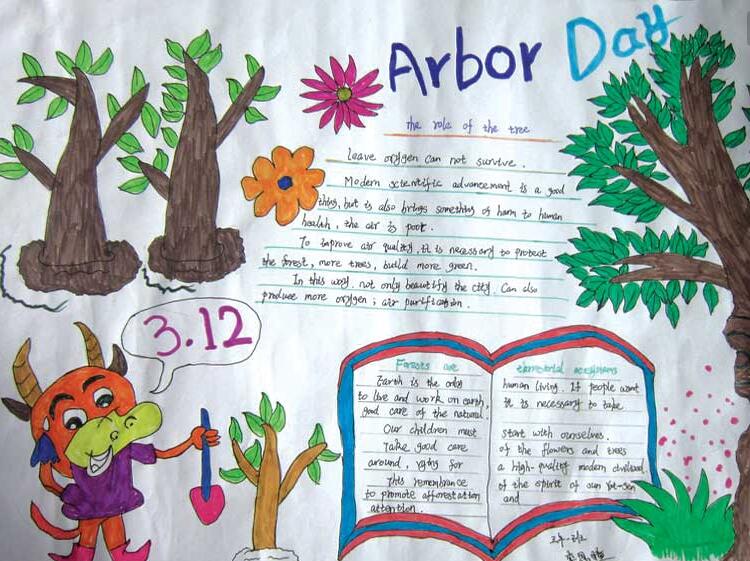 Arbor Day
The role of the tree
Leave oxygen can not survive.
Modern scientific advancement is a good
thing, but is also brings something of harm to human
health, the air is poor.
To improve air quality, it is necessary to protect
the forest, more trees, build more green.
In this way, not only beautify the city. Can also
produce more oxygen; air purification.
3.12
Forests are
Earth is the only
to live and work on earth,
good care of the natural.
Our children must
Take good care
around, for
this remembrance
to promote afforestation
attention.
terrestrial ecosystems
human living. If people want
It is necessary to take
start with ourselves.
of the flowers and trees
a high-quality modern
of the spirit of sun Yat-sen
and